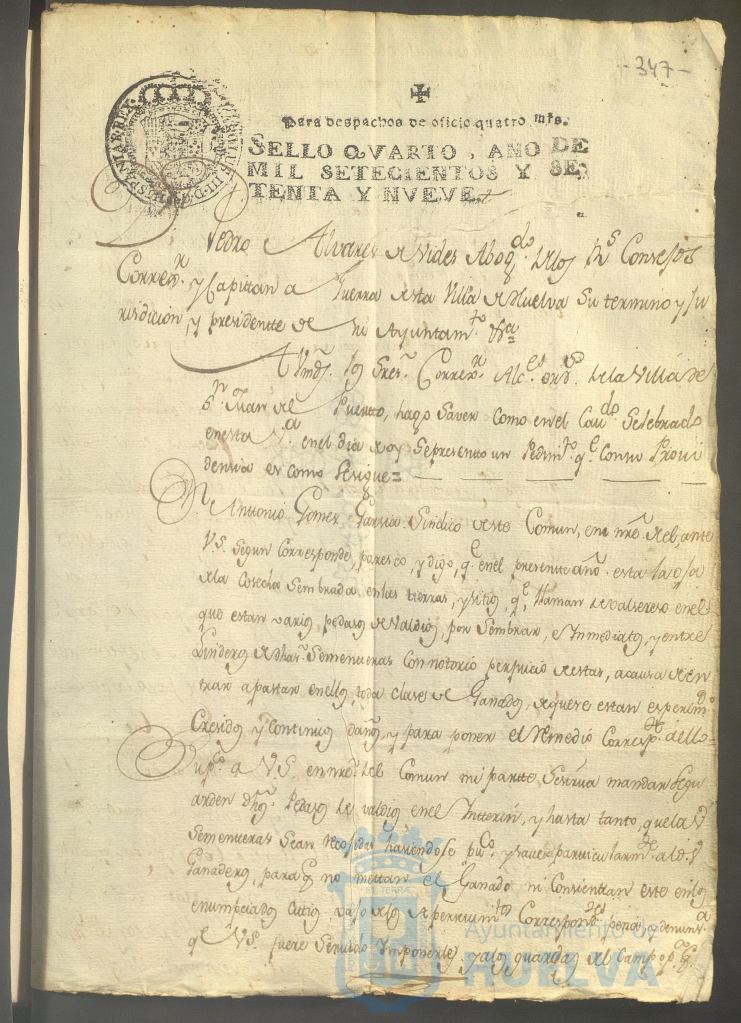 -347-
CAROLUS III D G HISPANIAR REX
Para despachos de oficio quatro mrs.
SELLO QVARTO, AÑO DE
MIL SETECIENTOS Y SE-
TENTA Y NVEVE.
Pedro Alvares de Vides Abogdo de los Rs Consejos
Correxr y Capittan a Guerra de esta Villa de Huelva su termino y ju
risdicion, y presidentte de su Ayuntamto &a
A Vmds los Sres Correxr Alces ordos de la Villa de
Sn Juan del Puertto, hago saver como en el Cavdo Selebrado
en esta Va en el dia de oy se presentto un Pedimto qe con su Provi
dencia es como se sigue=
Dn Anttonio Gomez Garsia Sindico de este Comun, en nre de el, ante
V.S. segun Corresponde, paresco, y digo, qe en el presente año esta la oja
de la Cosecha Sembrada en las tierras, y sitio, qe llaman de valsereso en el
que estan varios pedasos de Valdios, por Sembrar, e Inmediatos, y entre
Linderos de dhas Sementeras con notorio perjuicio de estas, a causa de en
trar a pastar en ellos, toda clase de Ganados, de que se estan experimdo
Cresidos y Continuos daños, y para poner el Remedio Correspte a ello=
Supco a V.S. en nre del Comun mi partte se sirva mandar se gu
arden dhos Pedasos de valdios en el Intterin, y hasta tanto, que las
Sementeras Sean recojidas haciendose pco, y saver particularmte a los
Ganaderos, para qe no mettan el Ganado ni Consientan este en los
enunpciados Cittios vajo de los apercevimtos Correspondtes penas, y denuns
qe V.S. fuere Servido Imponerles, y a los guardas del Campo pa q
Ayuntamiento de
HUELVA